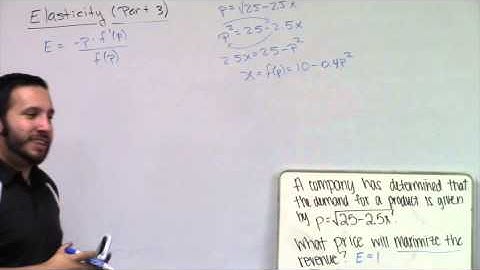 Elasticity (Part 3)
E = -p·f'(p) / f(p)
p=√25-2.5x
p²=25-2.5x
2.5x=25-p²
x=f(p)=10-0.4p²
A company has determined that
the demand for a product is given
by p=√25-2.5x.
What price will maximize the
revenue? E=1